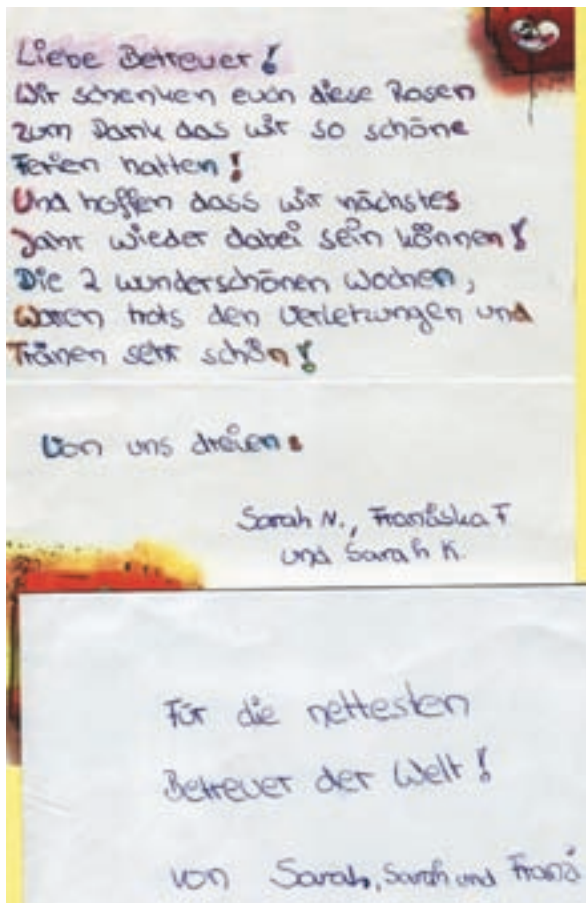 Liebe Betreuer!
Wir schenken euch diese Rosen
zum Dank das wir so schöne
Ferien hatten!
Und hoffen dass wir nächstes
Jahr wieder dabei sein können!
Die 2 wunderschönen Wochen,
Waren trots den Verletzungen und
Tränen sehr schön!
Von uns dreien:
Sarah N., Franziska F
und Sarah K.
Für die nettesten
Betreuer der Welt!
von Sarah, Sarah und Franzi